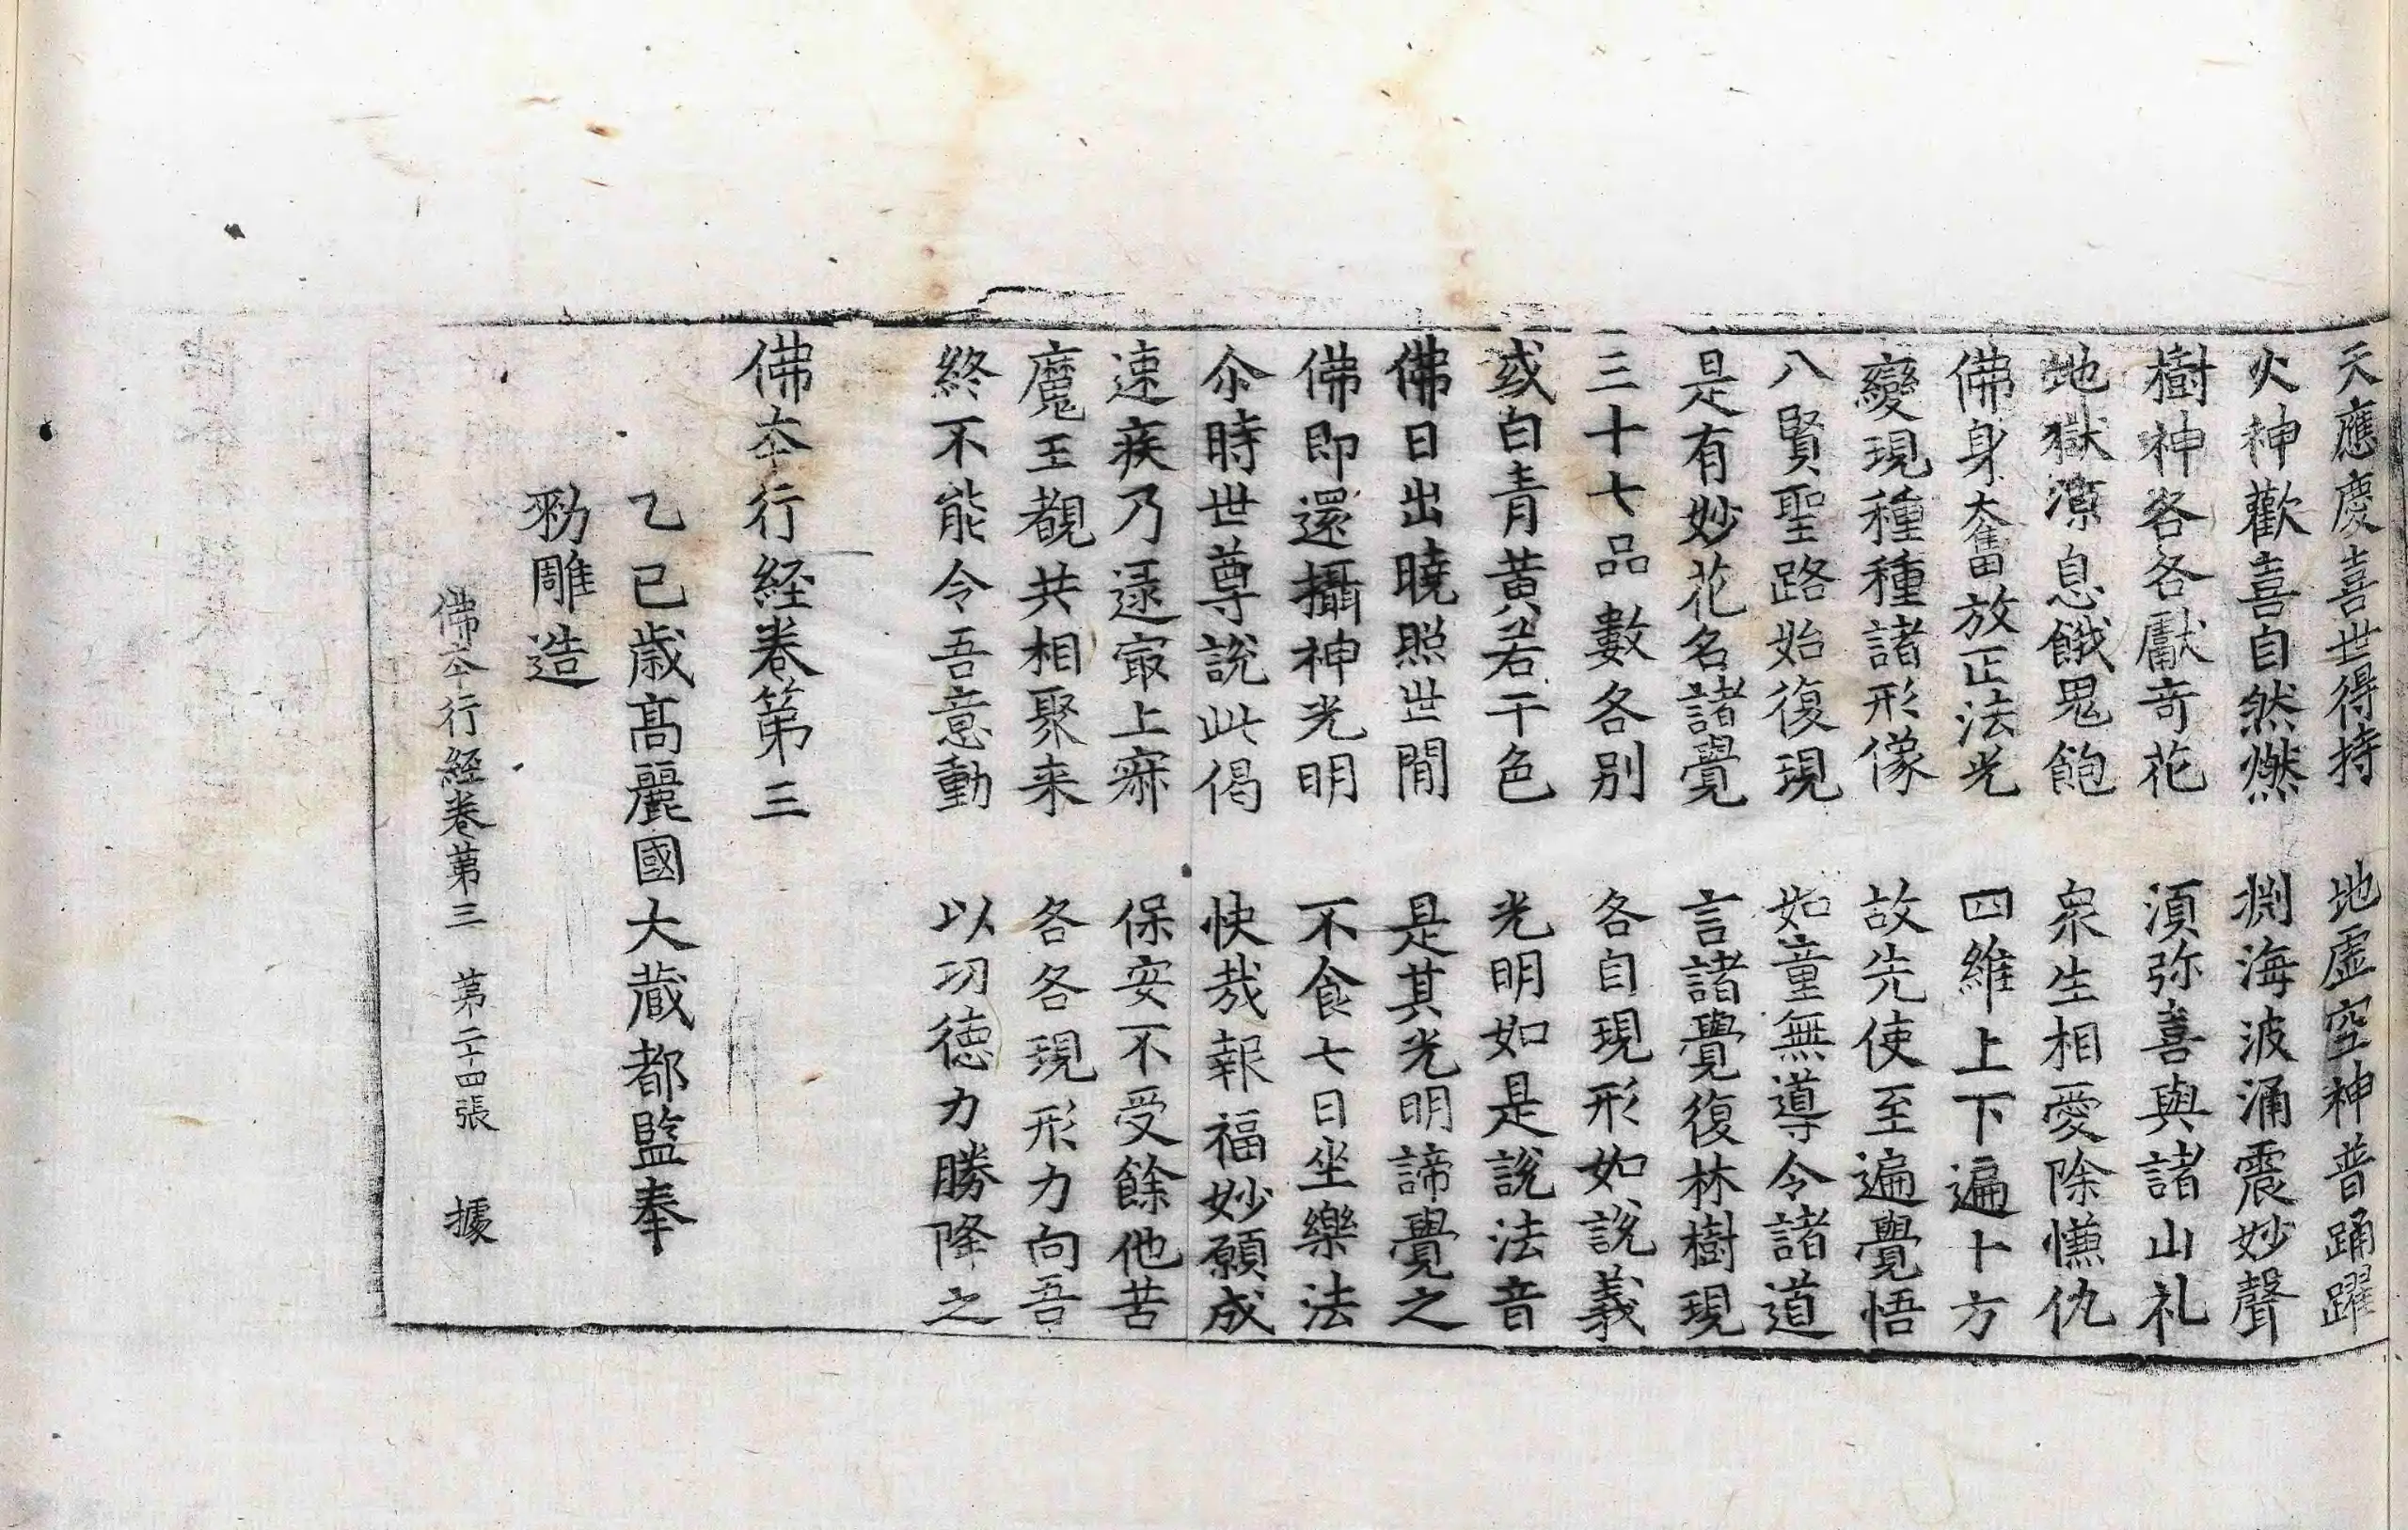 天應慶喜世得持　地虛空神普踊躍
火神歡喜自然燃　渕海波涌震妙聲
樹神各各獻奇花　湏弥喜與諸山礼
地獄凉息餓鬼飽　衆生相愛除慊仇
佛身大奮放正法光　四維上下遍十方
變現種種諸形像　故先使至遍覺悟
八賢聖路始復現　如童無導令諸道
是有妙花名諸覺　言諸覺復林樹現
三十七品數各別　各自現形如說義
或白青黃若干色　光明如是說法音
佛日出曉照世閒　是其光明諦覺之
佛即還攝神光明　不食七日坐樂法
尒時世尊說此偈　快哉報福妙願成
速疾乃逯㝡上寂　保安不受餘他苦
魔王覩共相聚来　各各現形力向吾
終不能令吾意動　以功德力勝降之
佛夲行経卷第三
乙巳歲高麗國大藏都監奉
勑雕造
佛夲行経卷第三　第二十四張　據